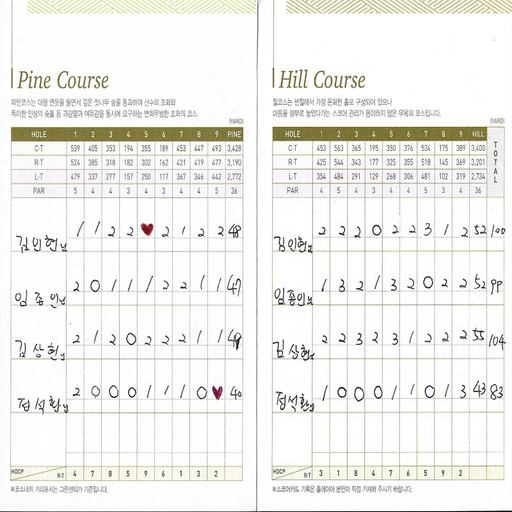 Pine Course
파인코스는 대형 연못을 돌면서 깊은 잣나무 숲을 통과하여 산수의 조화와
(YARD)
HOLE 1 2 3 4 5 6 7 8 9 PINE
C·T 539 405 353 194 355 189 453 447 493 3,428
R·T 524 385 318 182 302 162 421 419 477 3,190
L·T 479 337 277 157 250 117 367 346 442 2,772
PAR 5 4 4 3 4 3 4 4 5 36
김인현님 1 1 2 2 ♥ 2 1 2 2 48
임종인님 2 0 1 1 1 2 2 1 1 47
김상현님 2 1 2 0 2 2 2 1 1 49
정석환님 2 0 0 0 1 1 1 0 ♥ 40
HDCP R·T 4 7 8 5 9 6 1 3 2
※코스내의 거리표시는 그린센터가 기준입니다.
Hill Course
힐코스는 썬힐에서 가장 온화한 홀로 구성되어 있으나
마음을 함부로 놓았다가는 스코어 관리가 용이하지 않은 무욕의 코스입니다.
(YARD)
HOLE 1 2 3 4 5 6 7 8 9 HILL TOTAL
C·T 453 563 365 195 350 376 534 175 389 3,400
R·T 425 544 343 177 325 355 518 145 369 3,201
L·T 354 484 291 129 268 306 481 102 319 2,734
PAR 4 5 4 3 4 4 5 3 4 36
김인현님 2 2 2 0 2 2 3 1 2 52 100
임종인님 1 3 2 1 3 2 0 2 2 52 99
김상현님 2 2 3 2 3 1 2 2 2 55 104
정석환님 1 0 0 0 1 1 0 1 3 43 83
HDCP R·T 3 1 8 4 7 6 5 9 2
※스코어카드 기록은 플레이어 본인이 직접 기재해 주시기 바랍니다.